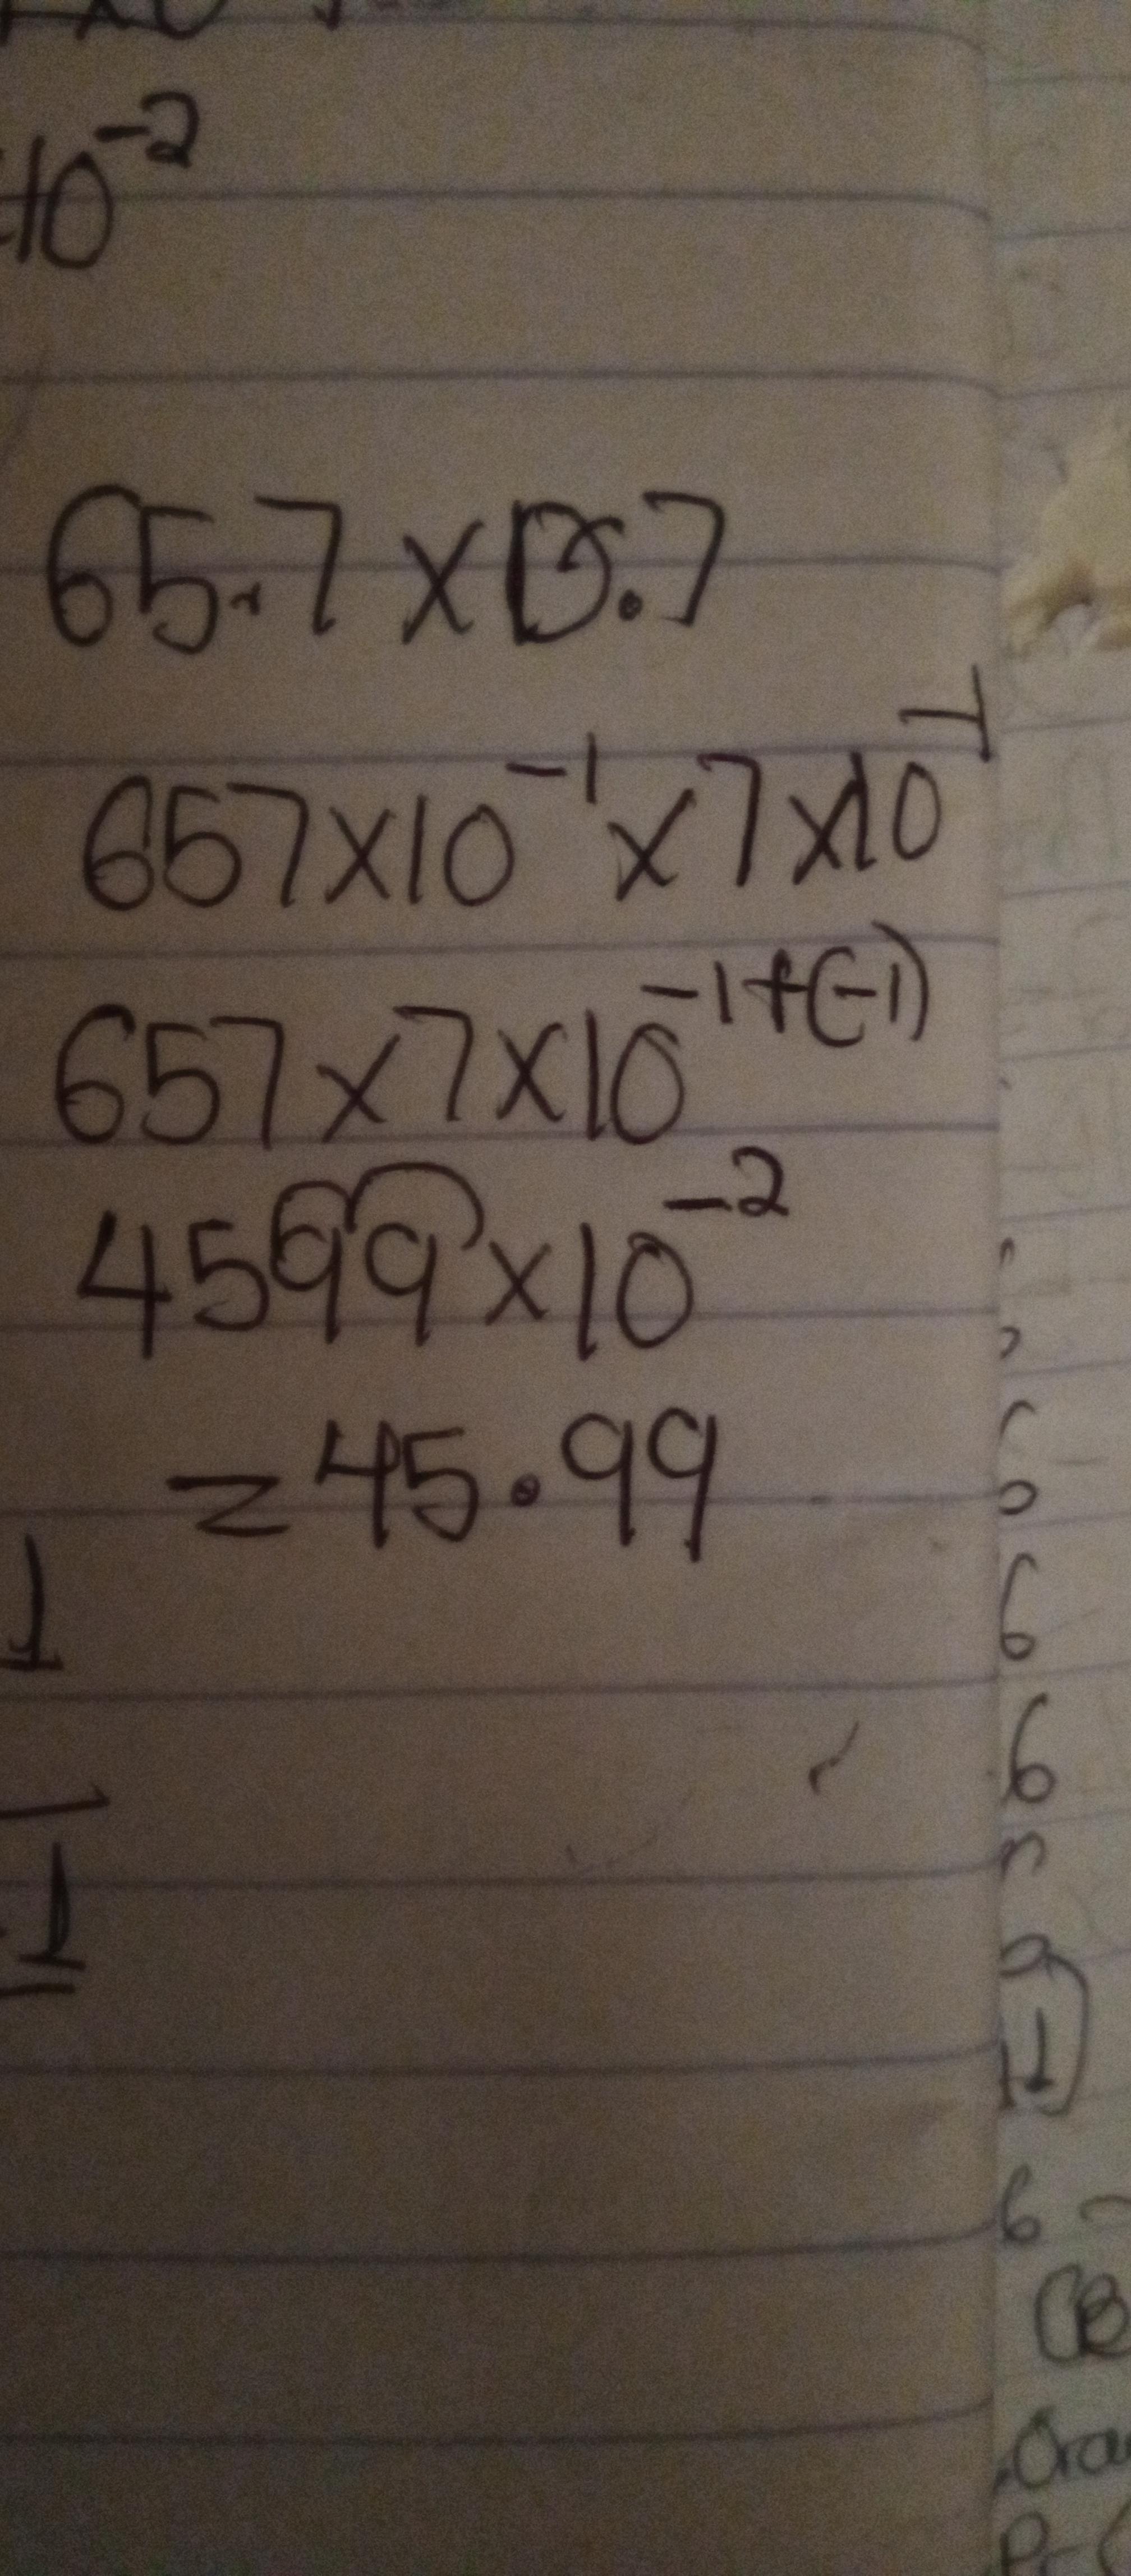 10⁻²
65.7 × 0.7
657×10⁻¹ × 7 ×10⁻¹
657 × 7 × 10⁻¹⁺⁽⁻¹⁾
4599 × 10⁻²
= 45.99
1
1
6
6
1)
6 -
(B